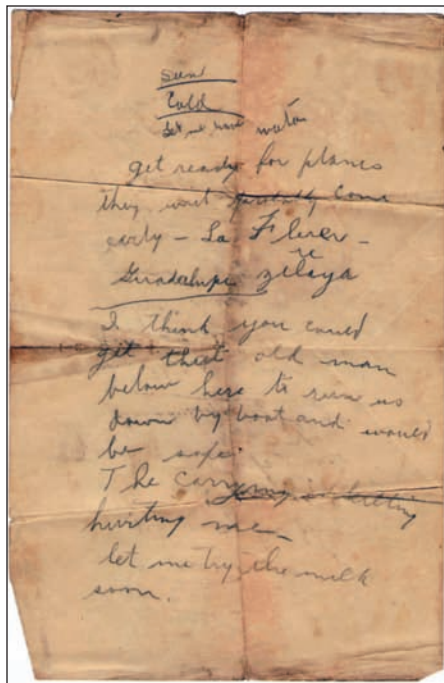 sun
Cold
let us have water
get ready for planes
they wont probably come
early – La
Guadalupe Zelaya
I think you could
get that old man
below here to run us
down by boat and would
be safe.
The carrying is killing
hurting me –
let me try the milk
soon.